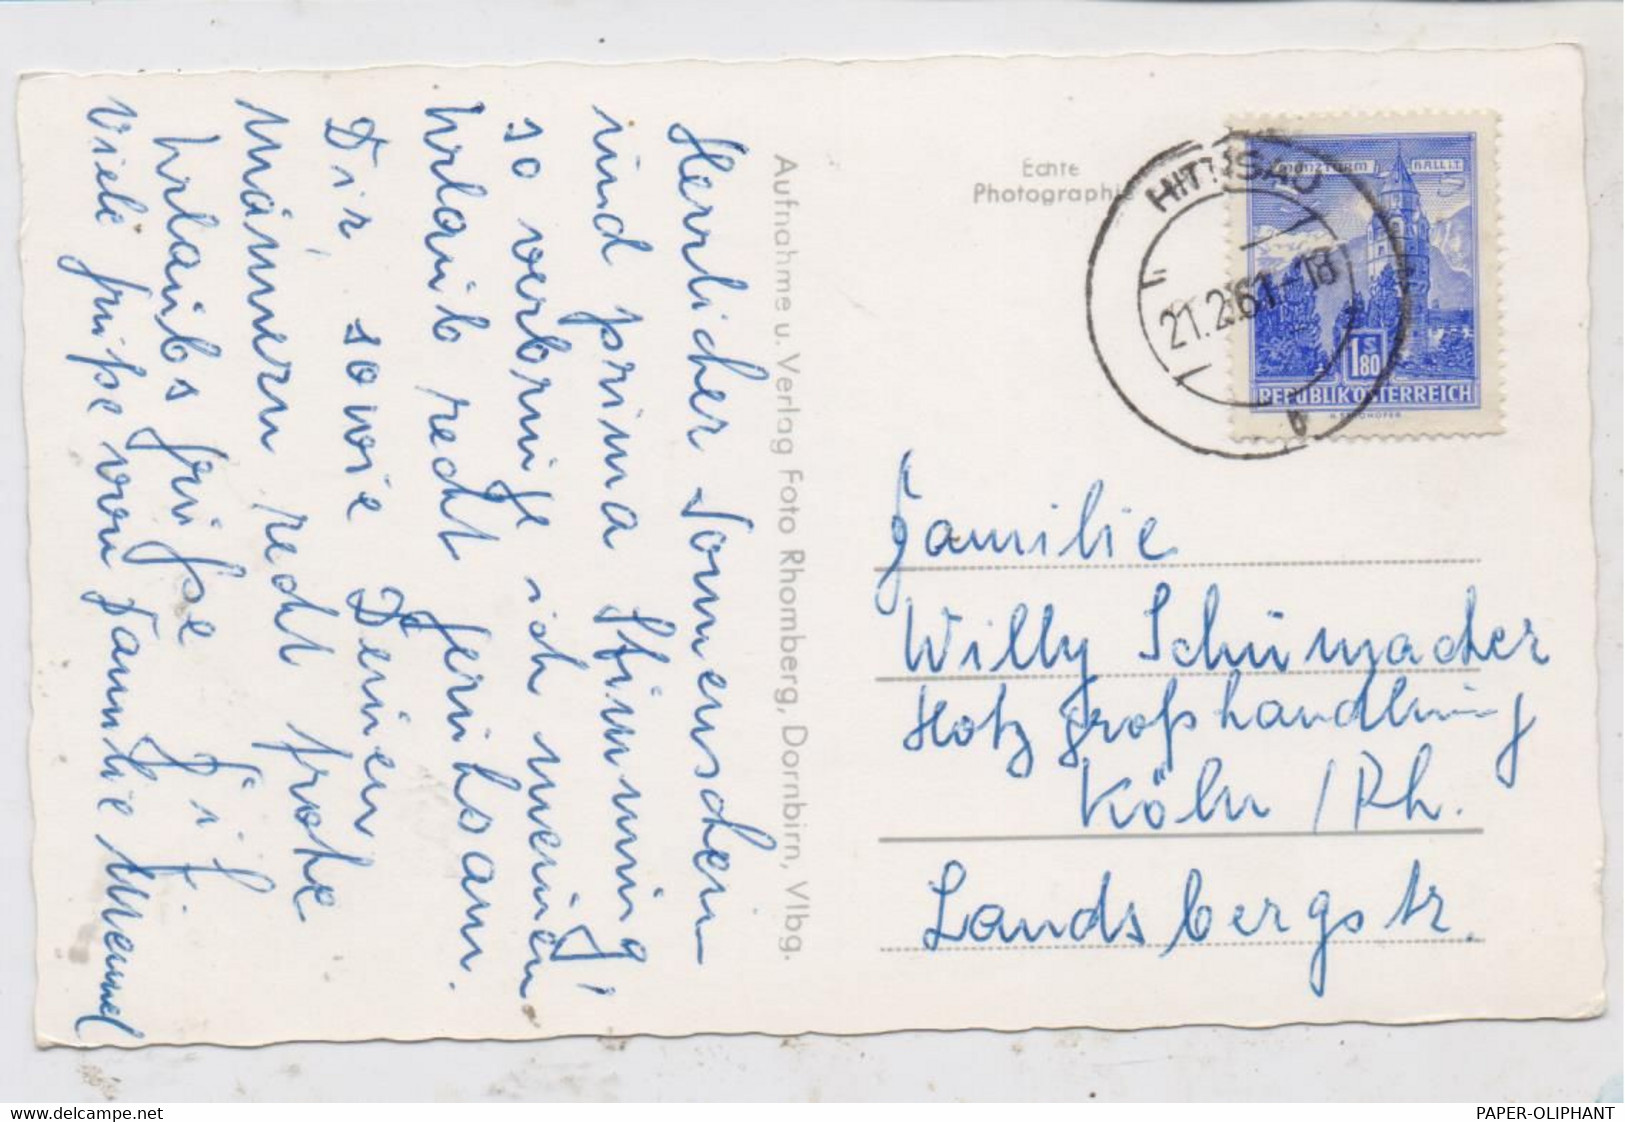 Herrlicher Sonnenschein
und prima Stimmung!
so verbringe ich meinen
Urlaub recht geruhsam.
Dir, sowie Deinen
Männern recht frohe
Urlaubsgrüße
Viele Grüße von Familie
Aufnahme u. Verlag Foto Rhomberg, Dornbirn, Vlbg.
Echte
Photographie
HITTISAU
21.2.61.-18
b
MÜNZTURM HALL I.T.
S
1.80
REPUBLIK ÖSTERREICH
Familie
Willy Schumacher
Holzgroßhandlung
Köln /Rh.
Landsbergstr.
www.delcampe.net
PAPER-OLIPHANT